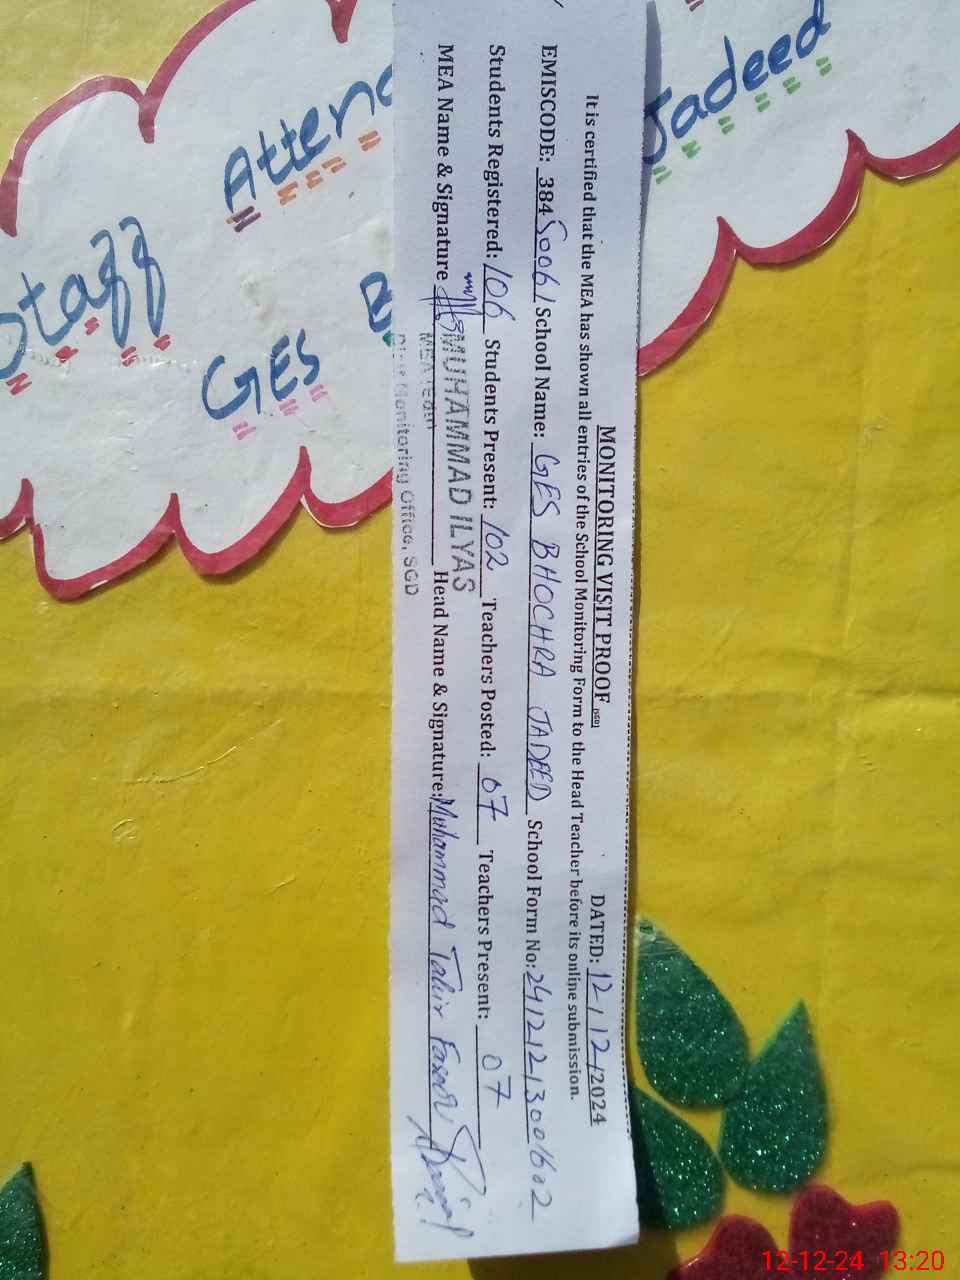 MONITORING VISIT PROOF (SGD) DATED: 12/12/2024
It is certified that the MEA has shown all entries of the School Monitoring Form to the Head Teacher before its online submission.
EMISCODE: 38450061 School Name: GES BHOCHRA JADEED School Form No: 24121213001602
Students Registered: 106 Students Present: 102 Teachers Posted: 07 Teachers Present: 07
MEA Name & Signature Head Name & Signature: Muhammad Tahir
MUHAMMAD ILYAS
MEA
Monitoring Office, SGD
Jadeed
Atten
Staff
GES B
12-12-24 13:20